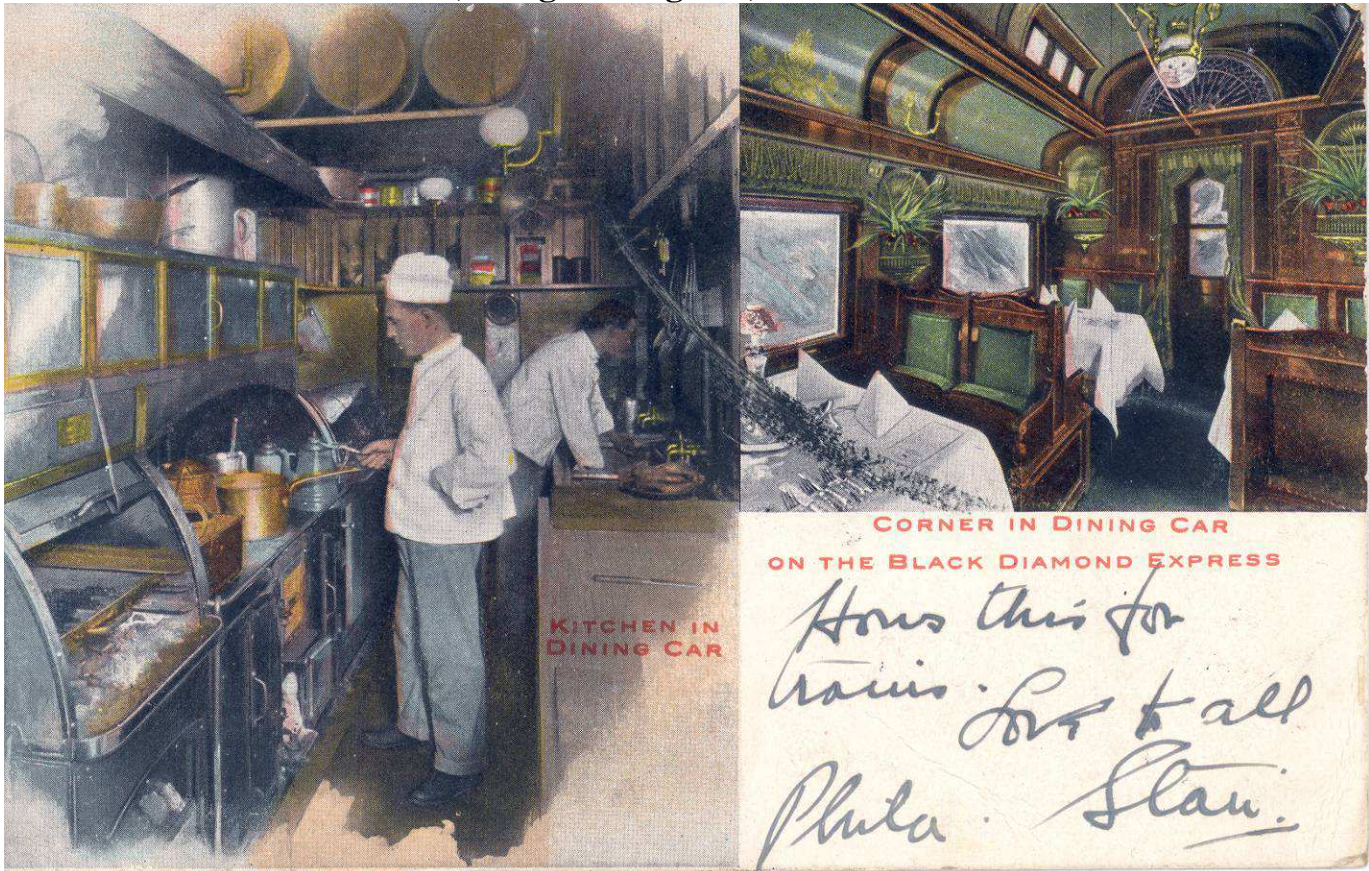 KITCHEN IN
DINING CAR
CORNER IN DINING CAR
ON THE BLACK DIAMOND EXPRESS
Hows this for
trains.
Love to all
Phila. Stan.